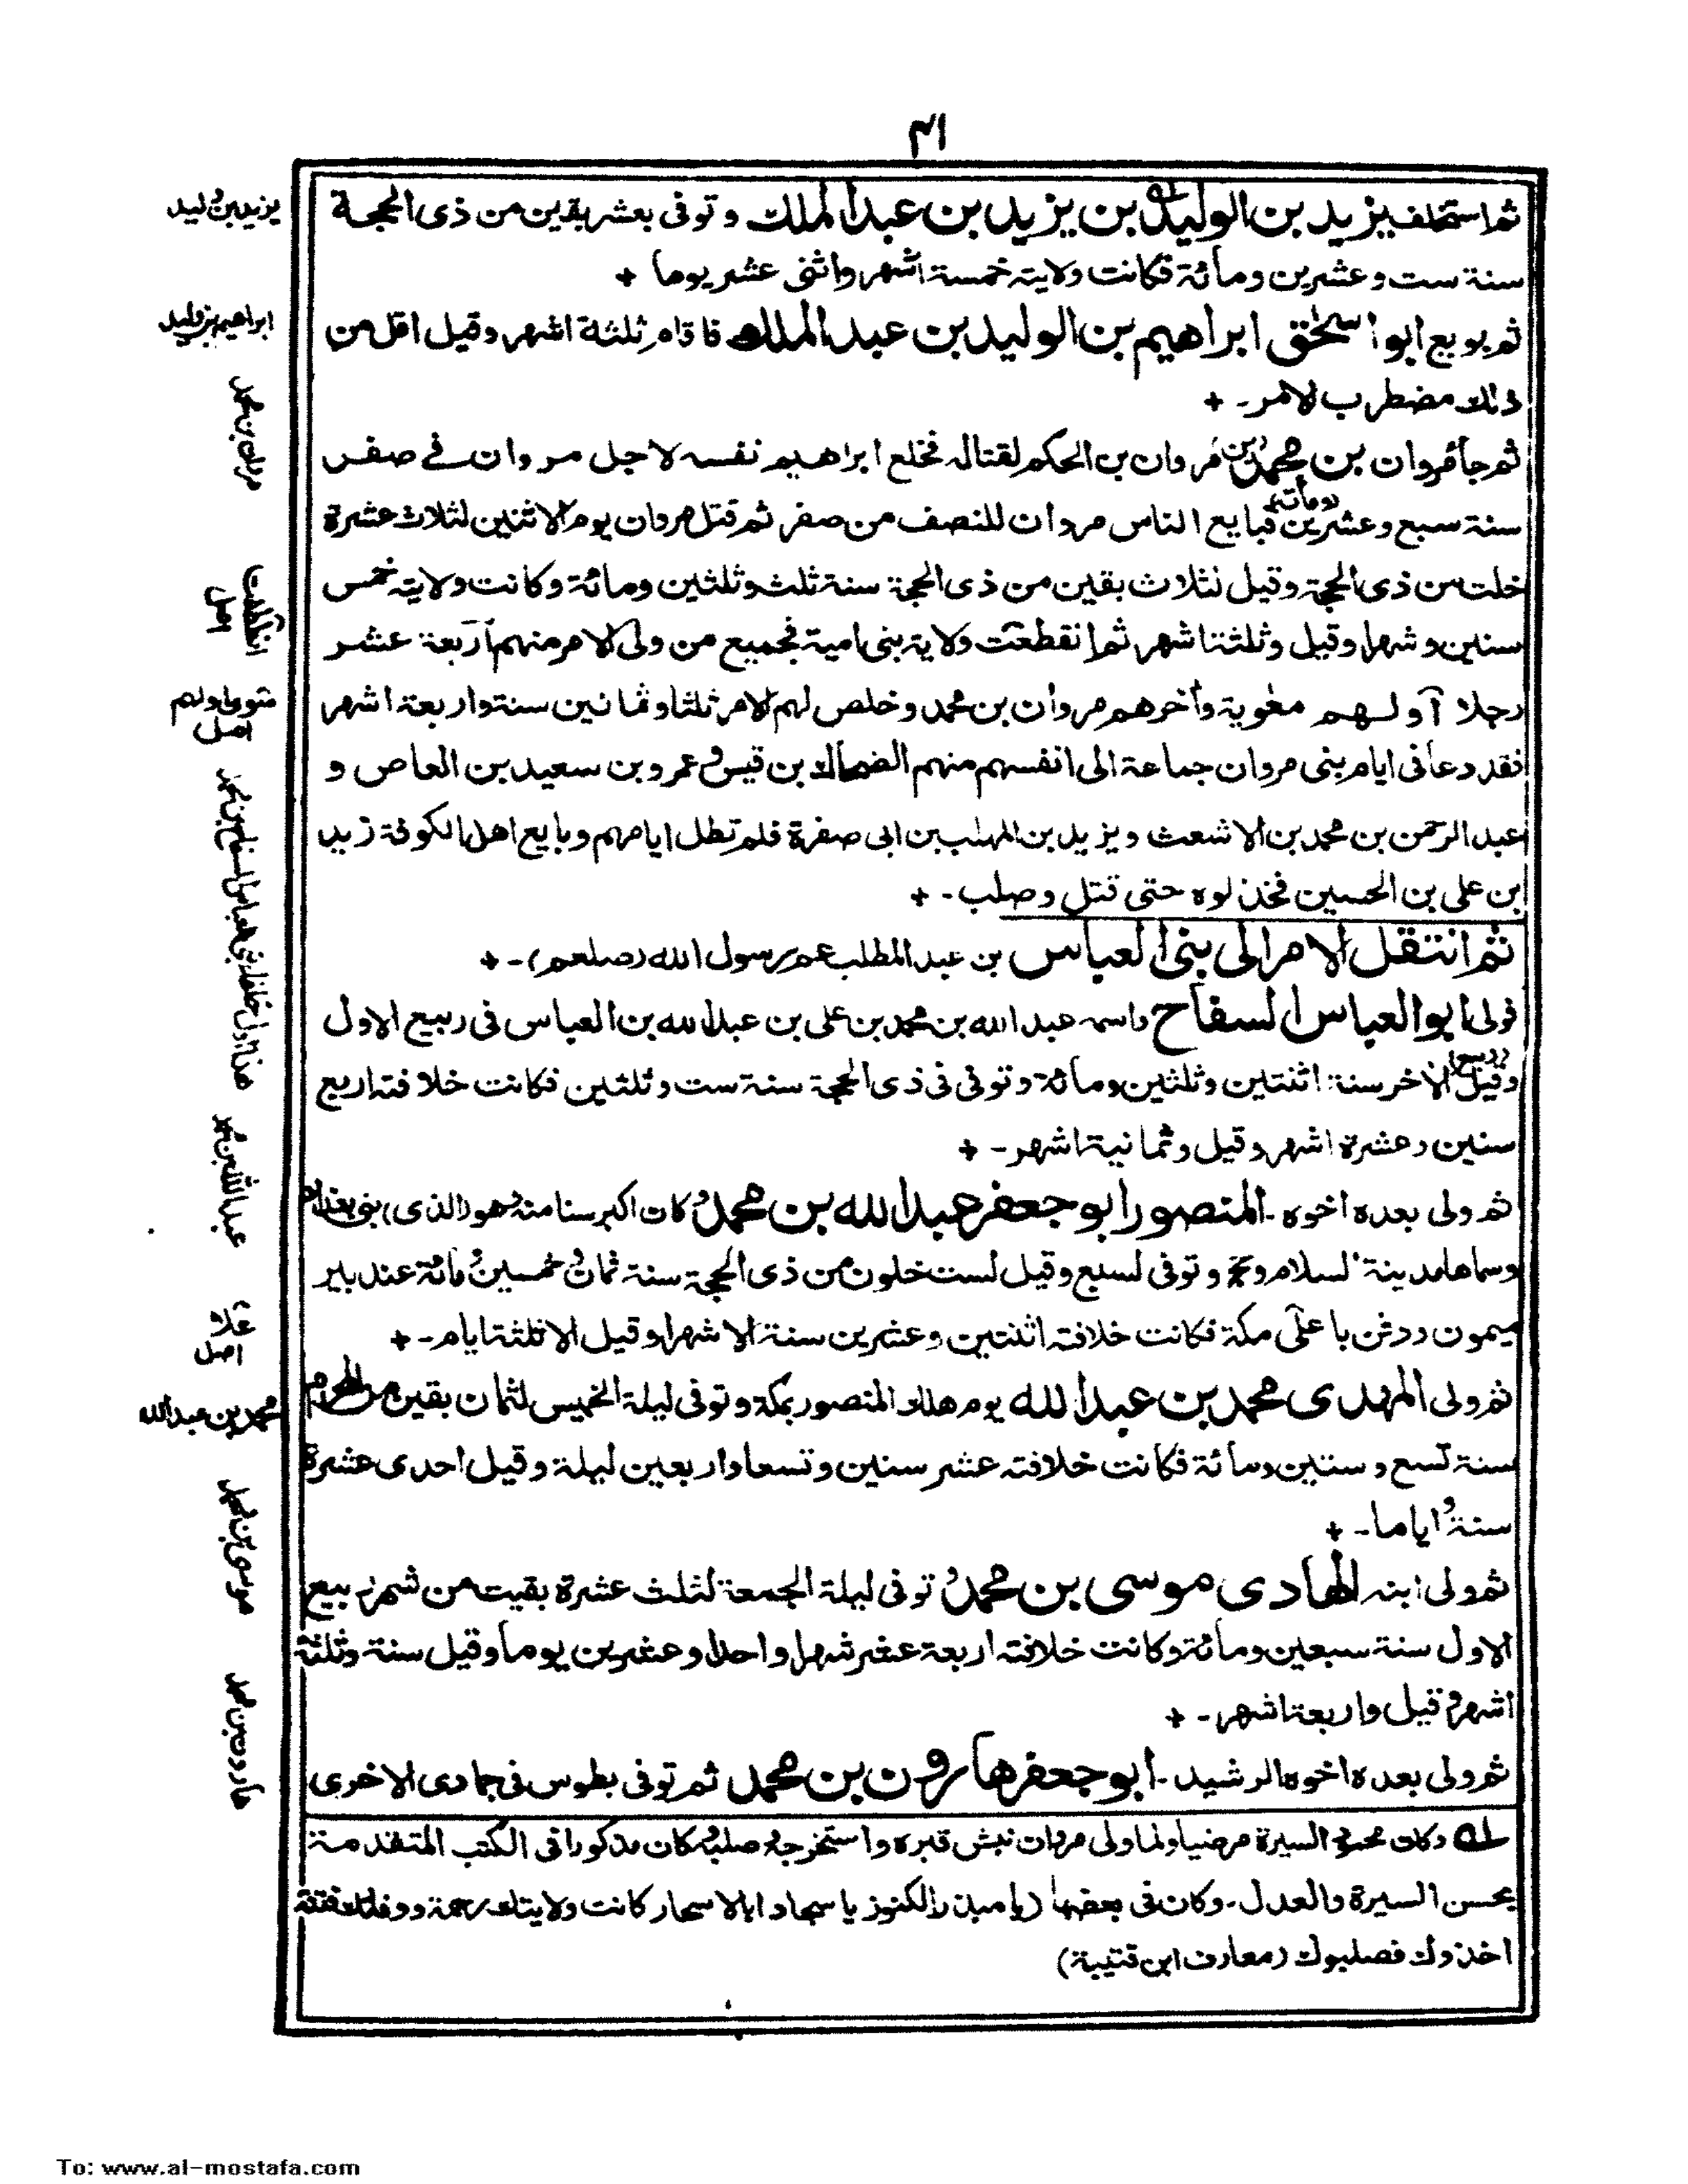 ٤١
ثم استخلف يزيد بن الوليد بن يزيد بن عبد الملك وتوفى بعشر بقين من ذى الحجة
سنة ست وعشرين ومائة فكانت ولايته خمسة اشهر واثنى عشر يوما +
ثم بويع ابو اسحٰق ابراهيم بن الوليد بن عبد الملك فاقام ثلثة اشهر وقيل اقل من
ذلك مضطرب الامر - +
ثم جاء مروان بن محمد (بن) مروان بن الحكم لقتاله فخلع ابراهيم نفسه لاجل مروان فى صفر
سنة سبع وعشرين (ومائة) فبايع الناس مروان للنصف من صفر ثم قتل مروان يوم الاثنين لثلاث عشرة
خلت من ذى الحجة وقيل لثلاث بقين من ذى الحجة سنة ثلث وثلثين ومائة وكانت ولايته خمس
سنين وشهرا وقيل وثلثة اشهر ثم انقطعت ولاية بنى امية فجميع من ولى الامر منهم اربعة عشر
رجلا اولهم معٰوية وآخرهم مروان بن محمد وخلص لهم الامر ثلثا وثمانين سنة واربعة اشهر
فقد دعا فى ايام بنى مروان جماعة الى انفسهم منهم الضحاك بن قيس وعمرو بن سعيد بن العاص و
عبد الرحمن بن محمد بن الاشعث ويزيد بن المهلب بن ابى صفرة فلم تطل ايامهم وبايع اهل الكوفة زيد
ابن على بن الحسين فخذلوه حتى قتل وصلب - +
ثم انتقل الامر الى بنى العباس بن عبد المطلب عم رسول الله (صلعم) - +
فولى ابو العباس السفاح واسمه عبد الله بن محمد بن على بن عبد الله بن العباس فى ربيع الاول
وقيل (ربيع) الاخر سنة اثنتين وثلثين ومائة وتوفى فى ذى الحجة سنة ست وثلثين فكانت خلافته اربع
سنين وعشرة اشهر وقيل وثمانية اشهر - +
ثم ولى بعده اخوه - المنصور ابو جعفر عبد الله بن محمد وكان اكبر سنا منه وهو (الذى) بنى بغداد
وسماها مدينة السلام وحج وتوفى لسبع وقيل لست خلون من ذى الحجة سنة ثمان وخمسين ومائة عند بير
ميمون ودفن باعلى مكة فكانت خلافته اثنتين وعشرين سنة الا شهرا وقيل الا ثلثة ايام - +
ثم ولى المهدى محمد بن عبد الله يوم هلك المنصور بمكة وتوفى ليلة الخميس لثمان بقين من المحرم
سنة تسع وستين ومائة فكانت خلافته عشر سنين وتسعا واربعين ليلة وقيل احدى عشرة
سنة و اياما - +
ثم ولى ابنه الهادى موسى بن محمد و توفى ليلة الجمعة لثلث عشرة بقيت من شهر ربيع
الاول سنة سبعين ومائة وكانت خلافته اربعة عشر شهرا واحدا وعشرين يوما وقيل سنة وثلثة
اشهر وقيل واربعة اشهر - +
ثم ولى بعده اخوه الرشيد - ابو جعفر هارون بن محمد ثم توفى بطوس فى جمادى الاخرى
له وكان محمود السيرة مرضيا ولما ولى مروان نبش قبره واستخرجه وصلبه وكان مذكورا فى الكتب المتقدمة
بحسن السيرة والعدل - وكان فى بعضها (يا مبذر الكنوز يا سجادا بالاسحار كانت ولايتك رحمة ووفاتك فتنة
اخذوك فصلبوك (معارف ابن قتيبة)
يزيد بن وليد
ابراهيم بن وليد
مروان بن محمد
اصل
اصل
هذا اول خلفاء بنى العباس السفاح بن محمد
عبد الله بن محمد
اصل
محمد بن عبد الله
موسى بن محمد
هارون بن محمد
To: www.al-mostafa.com